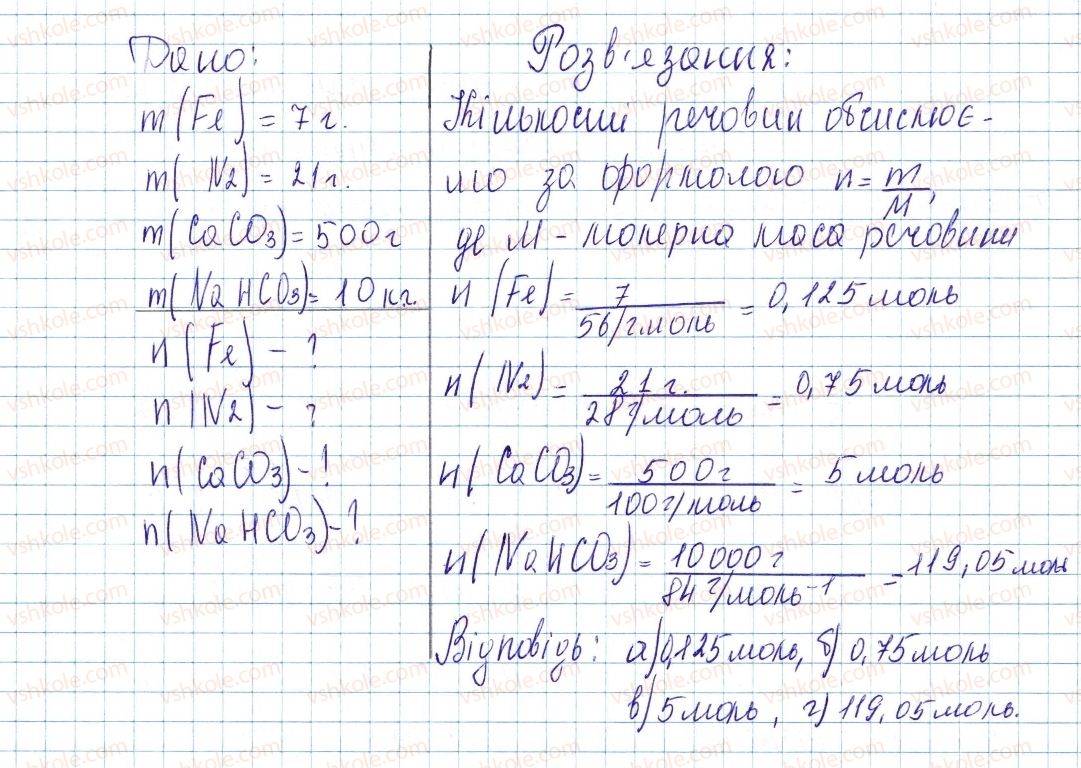 Дано:
m(Fe) = 7 г.
m(N2) = 21 г.
m(CaCO3) = 500 г
m(NaHCO3) = 10 кг.
n(Fe) - ?
n(N2) - ?
n(CaCO3) - ?
n(NaHCO3) - ?
Розв'язання:
Кількості речовин обчислює-
мо за формолою n = m/M,
де M - молерна маса речовини
n(Fe) = 7 / 56/г моль = 0,125 моль
n(N2) = 21 г. / 28 г/моль = 0,75 моль
n(CaCO3) = 500 г / 100 г/моль = 5 моль
n(NaHCO3) = 10000 г / 84 г/моль-1 = 119,05 моль
Відповідь: а) 0,125 моль, б) 0,75 моль
в) 5 моль, г) 119,05 моль.
vshkole.com